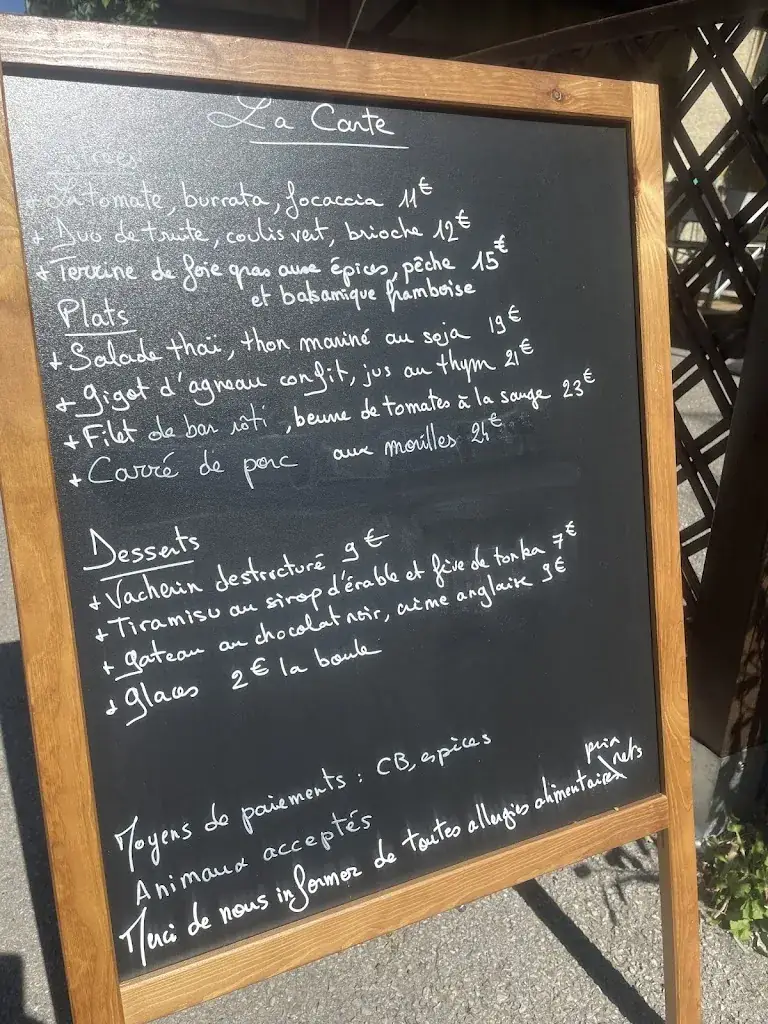 La Carte
Entrées
+ La tomate, burrata, focaccia 11€
+ Duo de truite, coulis vert, brioche 12€
+ Terrine de foie gras aux épices, pêche 15€
et balsamique framboise
Plats
+ Salade thaï, thon mariné au soja 19€
+ Gigot d'agneau confit, jus au thym 21€
+ Filet de bar rôti, beurre de tomates à la sauge 23€
+ Carré de porc aux morilles 24€
Desserts
+ Vacherin destructuré 9€
+ Tiramisu au sirop d'érable et fève de tonka 7€
+ gateau au chocolat noir, crème anglaise 9€
+ glaces 2€ la boule
Moyens de paiements : CB, espices
Animaux acceptés
Merci de nous informer de toutes allergies alimentaires
prix nets